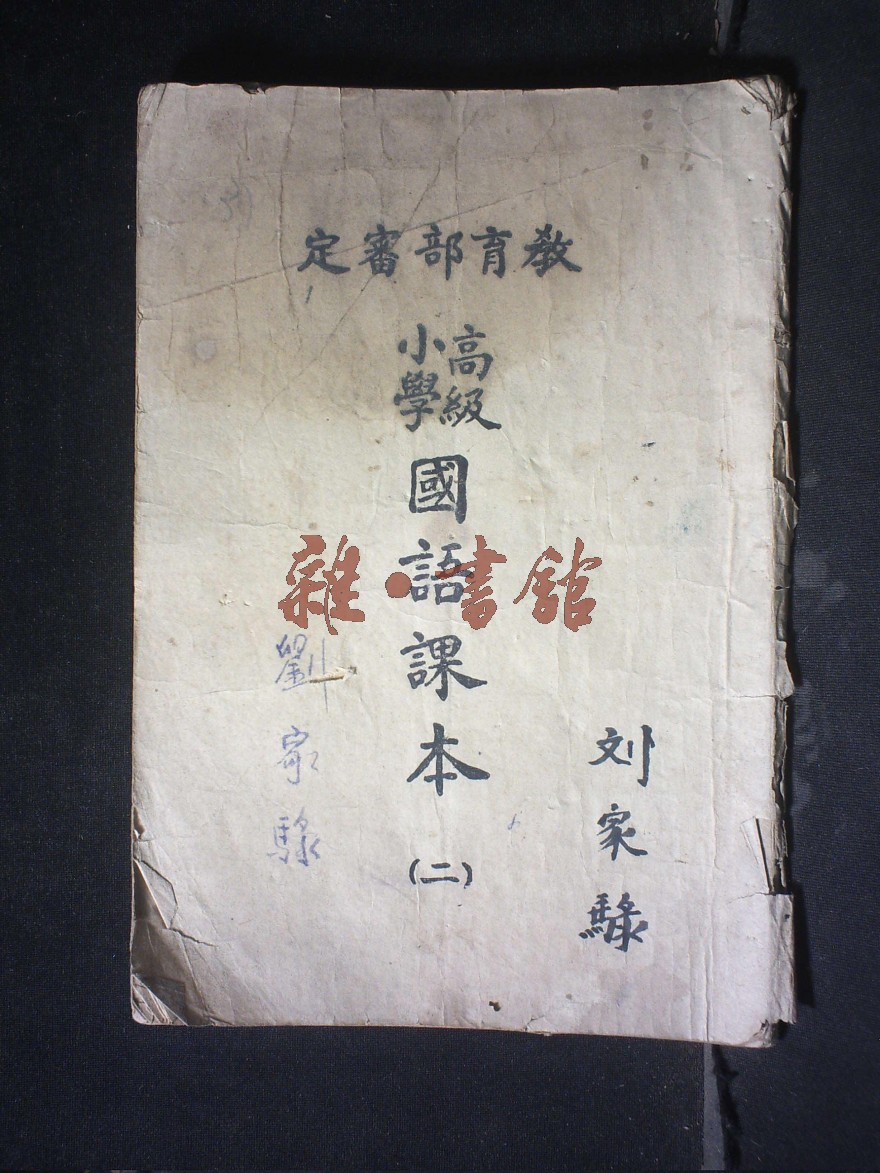 敎育部審定
高級
小學
國語課本
(二)
刘家騄
劉家騄
雜·書館